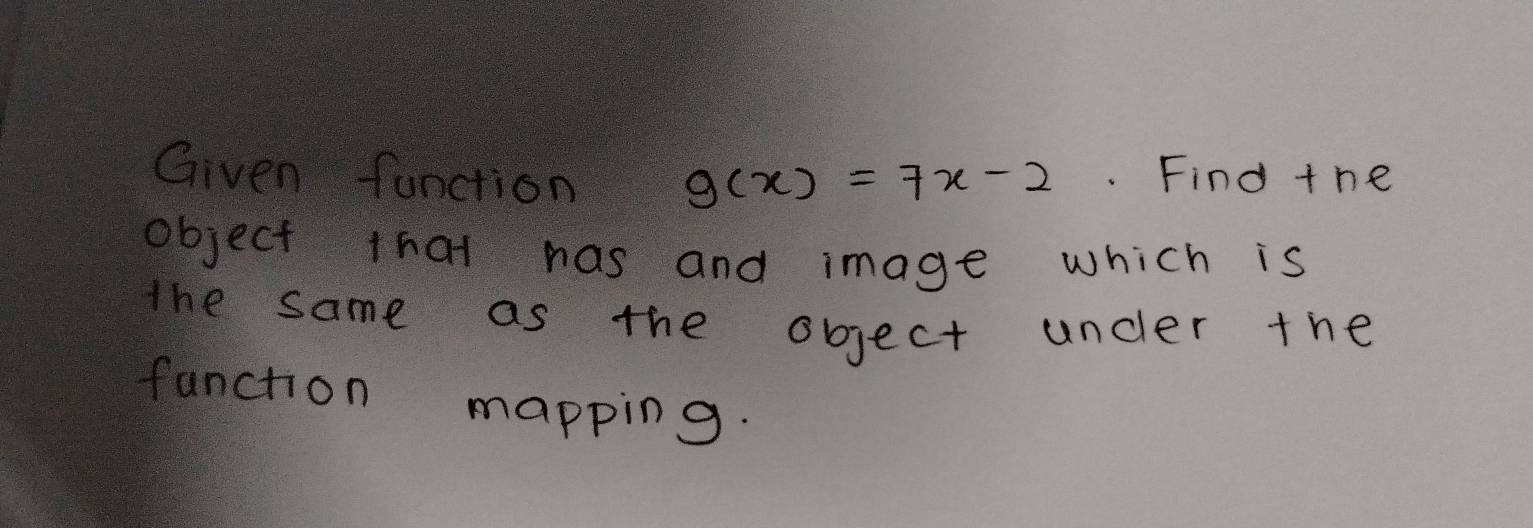 Given function g(x) = 7x - 2 . Find the
object that has and image which is
the same as the object under the
function mapping.